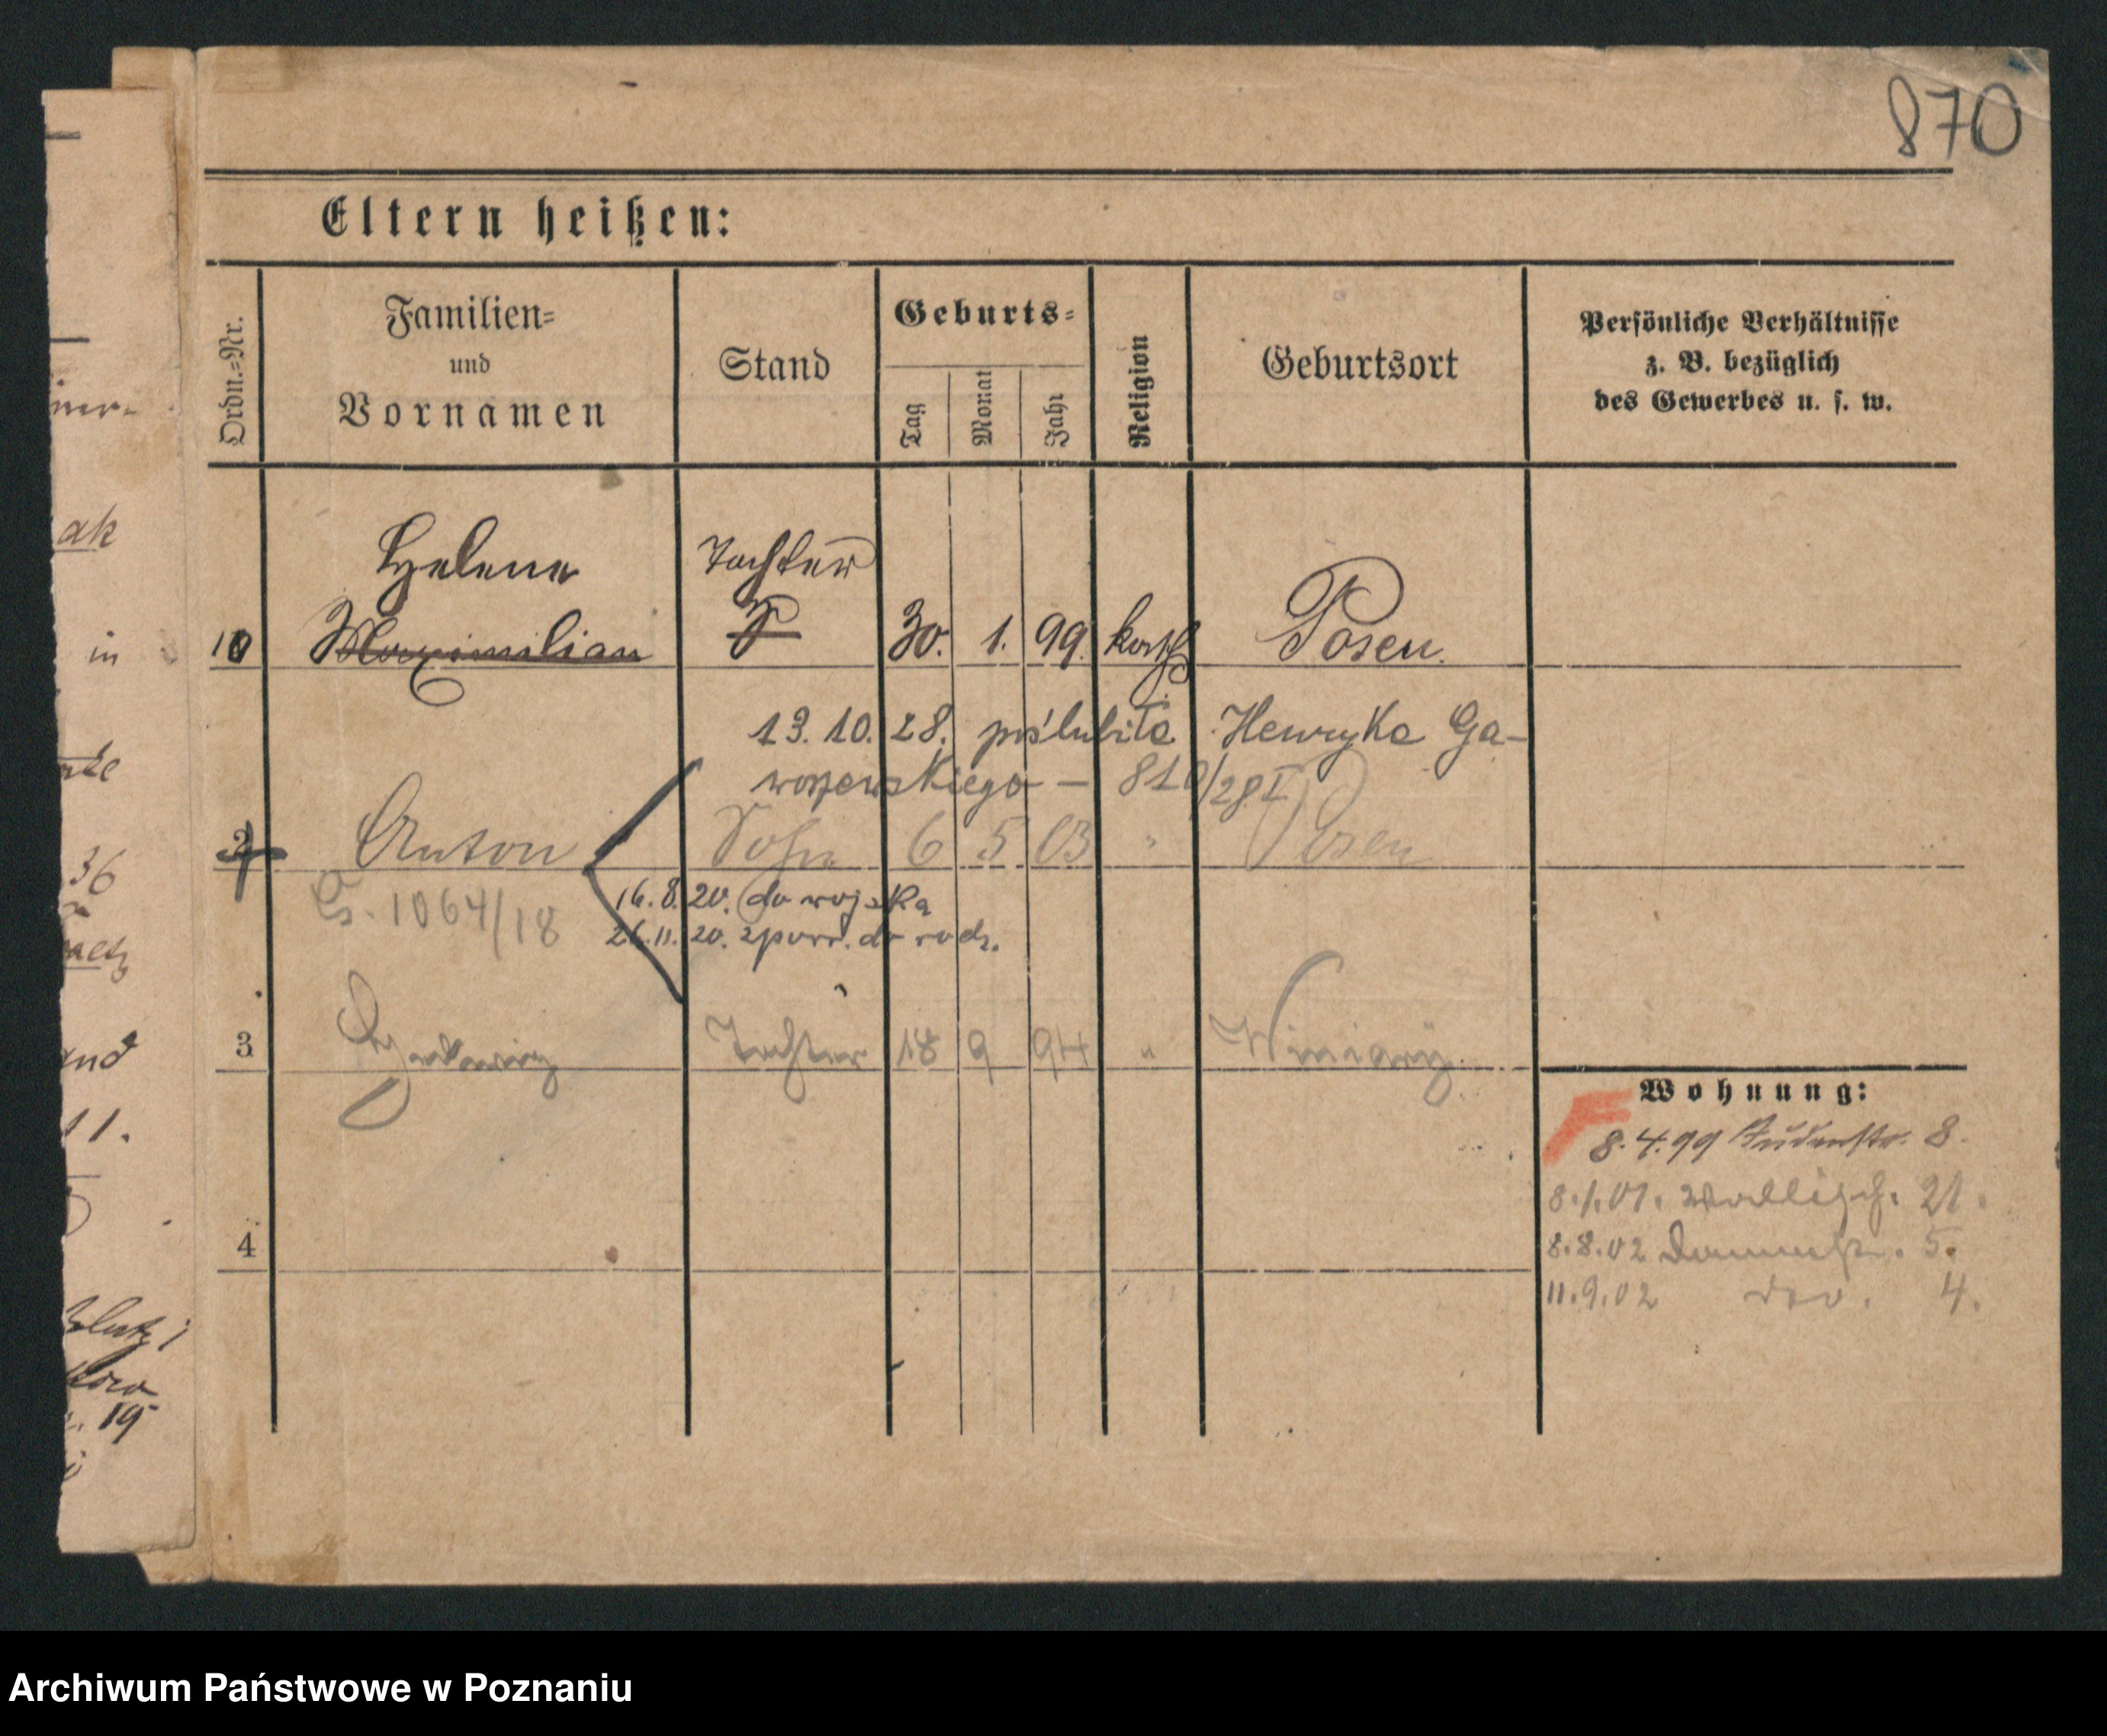 870
Eltern heißen:
Ordn.-Nr.
Familien-
und
Vornamen
Stand
Geburts-
Tag
Monat
Jahr
Religion
Geburtsort
Persönliche Verhältnisse
z. B. bezüglich
des Gewerbes u. s. w.
Helene Tochter
10 Maximilian 30. 1. 99. kath Posen.
13. 10. 28. poślubiła Henryka Ga-
wozewskiego — 810/28 I
2 Anton Sohn 6 5 03 " Posen
G. 1064/18
16. 8. 20. do wojska
26. 11. 20. z pow. do rodz.
3 Hedwig Tochter 18 9 94 " Winiary.
4
Wohnung:
8. 4. 99 Judenstr. 8.
8. 1. 01. Wallisch. 21.
8. 8. 02 5.
11. 9. 02 4.
ak
in
36
und
11.
19
Archiwum Państwowe w Poznaniu